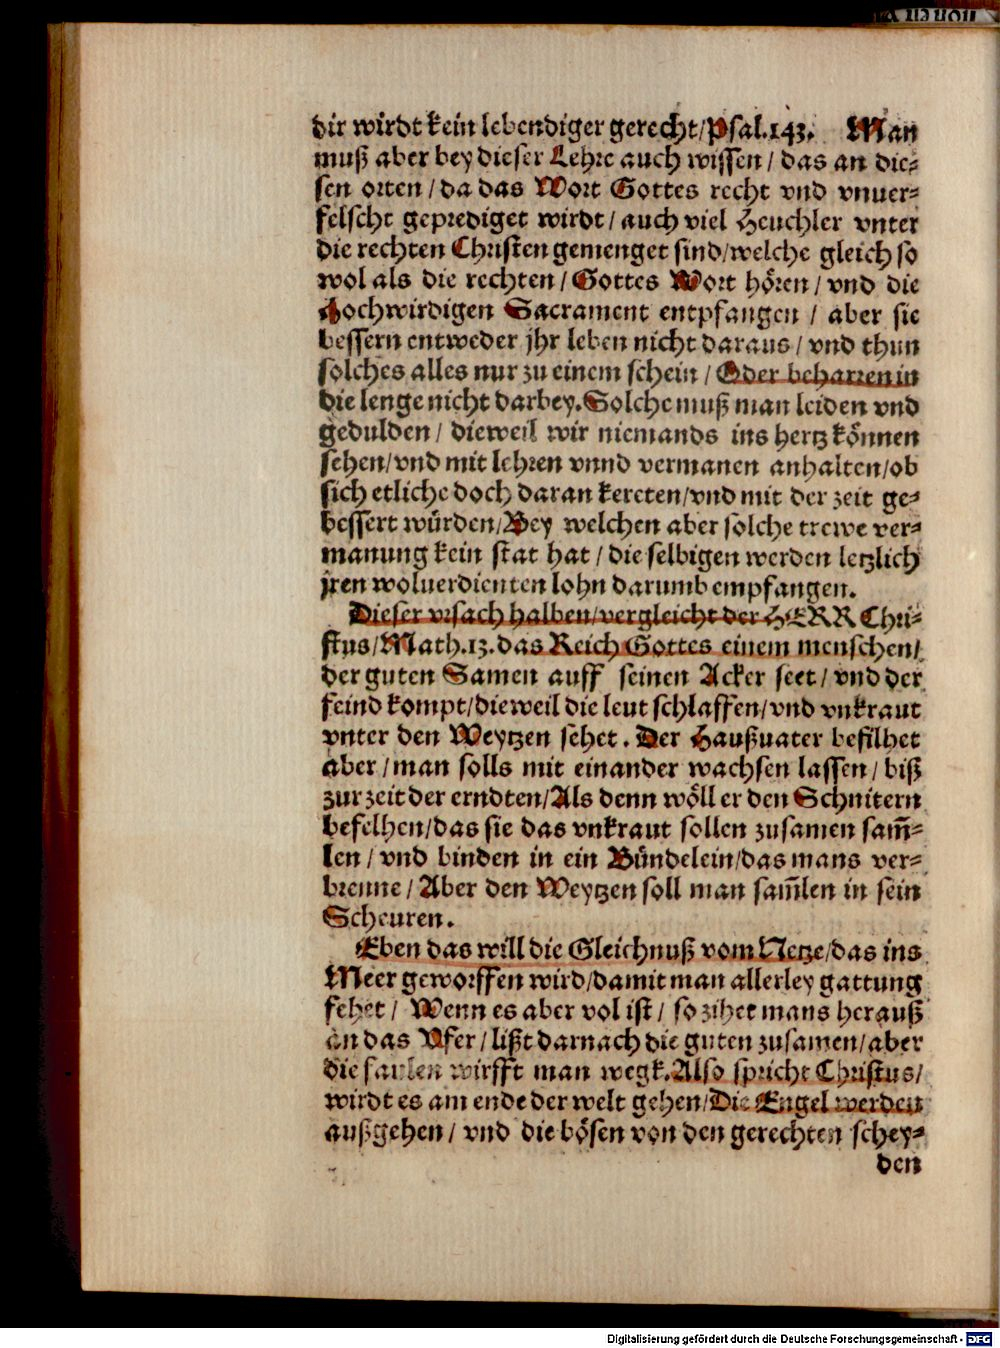 dir wirdt kein lebendiger gerecht/Psal.143. Man
muß aber bey dieser Lehre auch wissen / das an die⸗
sen orten / da das Wort Gottes recht vnd vnuer⸗
felscht geprediget wirdt / auch viel Heuchler vnter
die rechten Christen gemenget sind/welche gleich so
wol als die rechten / Gottes Wort hören / vnd die
Hochwirdigen Sacrament entpfangen / aber sie
bessern entweder jhr leben nicht daraus / vnd thun
solches alles nur zu einem schein / Oder beharren in
die lenge nicht darbey. Solche muß man leiden vnd
gedulden / dieweil wir niemands ins hertz können
sehen/vnd mit lehren vnnd vermanen anhalten/ob
sich etliche doch daran kereten/vnd mit der zeit ge⸗
bessert würden/Bey welchen aber solche trewe ver⸗
manung kein stat hat / die selbigen werden letzlich
jren woluerdienten lohn darumb empfangen.
Dieser vrsach halben/vergleicht der HERR Chri⸗
stus/Math.13.das Reich Gottes einem menschen/
der guten Samen auff seinen Acker seet / vnd der
feind kompt/dieweil die leut schlaffen/vnd vnkraut
vnter den Weytzen sehet. Der Haußuater befilhet
aber / man solls mit einander wachsen lassen / biß
zur zeit der erndten/Als denn wöll er den Schnitern
befelhen/das sie das vnkraut sollen zusamen sam̃⸗
len / vnd binden in ein Bündelein/das mans ver⸗
brenne / Aber den Weytzen soll man sam̃len in sein
Scheuren.
Eben das will die Gleichnuß vom Netze/das ins
Meer geworffen wird/damit man allerley gattung
fehet / Wenn es aber vol ist / so zihet mans herauß
an das Vfer / lißt darnach die guten zusamen/aber
die faulen wirfft man wegk. Also spricht Christus/
wirdt es am ende der welt gehen/Die Engel werden
außgehen / vnd die bösen von den gerechten schey⸗
den
Digitalisierung gefördert durch die Deutsche Forschungsgemeinschaft - DFG